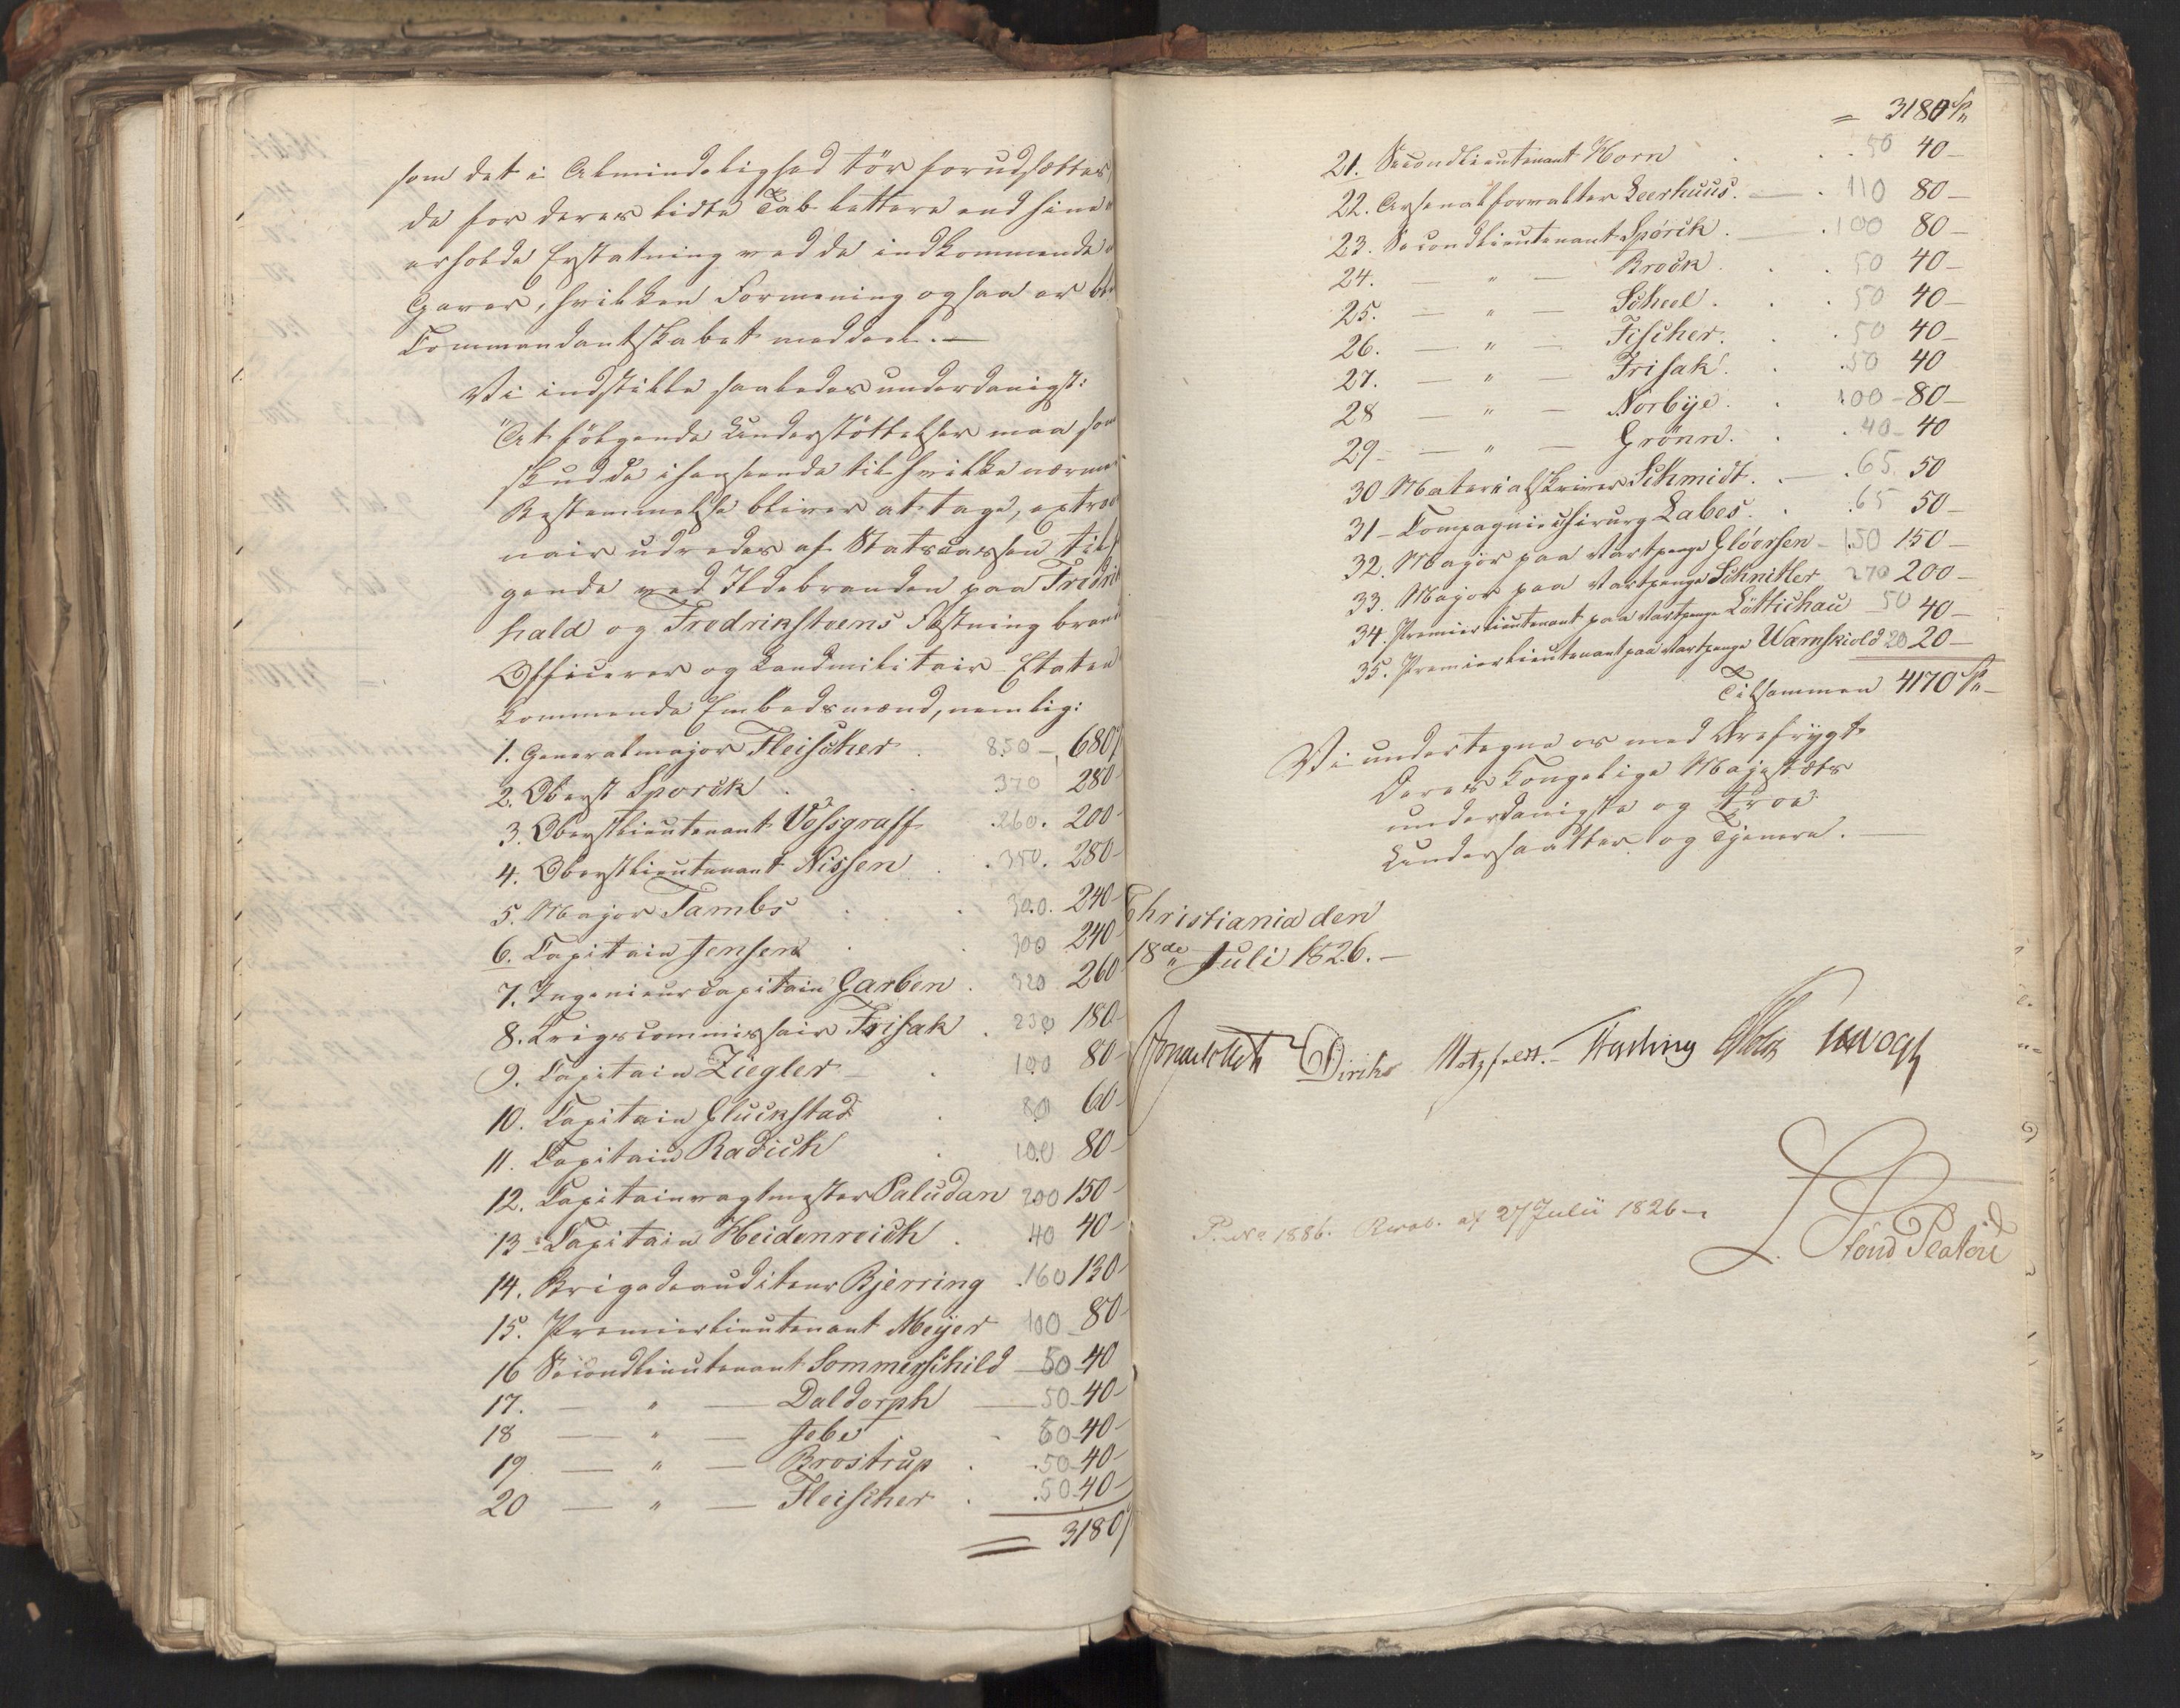 som det i Almindelighed tör forudsættes
de for deres lidte Tab lettere end hine
erholde Erstatning ved de indkommende
Gaver, hvilken Formening ogsaa er
Commandantskabet meddeel. —
Vi indstille saaledes underdanigst:
"At fölgende Understöttelser maa som
skud de ihenseende til hvilke nærme
Bestemmelse bliver at tage, extraor
nair udredes af Statscassen til
gende ved Ildebranden paa Fredrik
hald og Fredrikstens Fæstning brand
Officerer og Landmilitair Etaten
kommende Embedsmænd, nemlig:
1. Generalmajor Fleischer . 850 — 680
2. Oberst Sporck . . 370 280
3. Oberstlieutenant Vossgraff . 260. 200-
4. Oberstlieutenant Nissen . . 350. 280-
5. Major Tambs . . 300. 240-
6. Capitain Jensen . . 300 240
7. Ingenieurcapitain Garben . 320 260
8. Krigscommissair Frisak . 230 180-
9. Capitain Ziegler — . 100 80-
10. Capitain Gluckstad . 80 60-
11. Capitain Radich . 100 80-
12. Capitainvagtmester Paludan 200 150-
13. Capitain Heidenreich . 40 40-
14. Brigadeauditeur Bjerring . 160 130-
15. Premierlieutenant Meijer 100 80-
16 Secondlieutenant Sommerschild — 50 40
17. — " — Daldorph — 50-40-
18 — " — Jebe . - 50-40-
19 — " — Brostrup . .50-40-
20 — " — Fleischer . .50-40-
= 3180
= 3180 Sp.
21. Secondlieutenant Horn . . 50 40-
22. Arsenalforvalter Leerhuus. — . 110 80-
23. Secondlieutenant Spörck . — . 100 80-
24. — " — Brock . . 50 40-
25. — " — Scheel . . 50 40-
26. — " — Fischer. . . 50 40-
27. — " — Frisak. . .50 40
28 — " — Norbye. . 100-80-
29- — " — Grönn. . . 40-40
30 Materialskriver Schmidt. . — .65. 50
31- Compagniechirurg Labes. . .65 50-
32. Major paa Vartpenge Glöersen - 150 150-
33. Major paa Vartpenge Schnitler 270 200-
34. Premierlieutenant paa Vartpenge Lüttichau 50 40-
35. Premierlieutenant paa Vartpenge Wamskiold 20 20-
Tilsammen 4170 Sp.-
Vi undertegne os med Ærefrygt
Deres Kongelige Majestæts
underdanigste og troe
Undersaatter og Tjenere. —
Christiania den
18de Juli 1826. —
Diriks Motzfeldt. Fasting
P. No 1886. Resol. af 27 Julii 1826